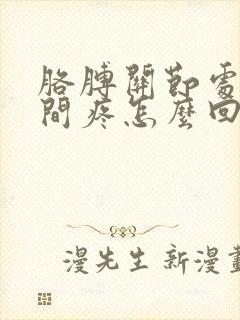 胳膊關節處
間疼怎麼回
漫先生新漫畫